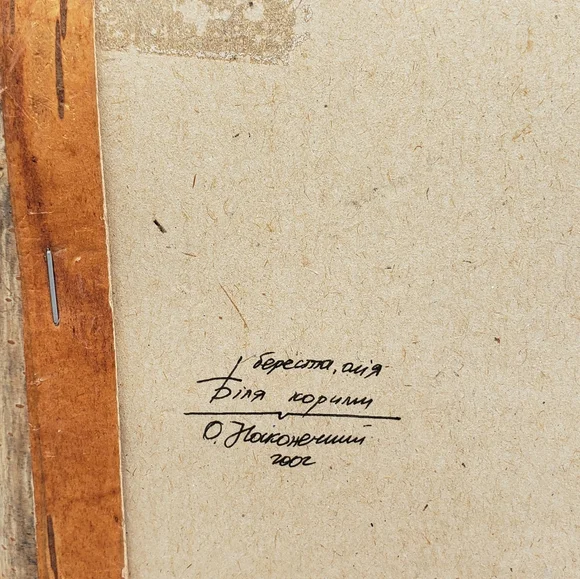 береста, олія
Біля корчми
О. Наконечний
2002